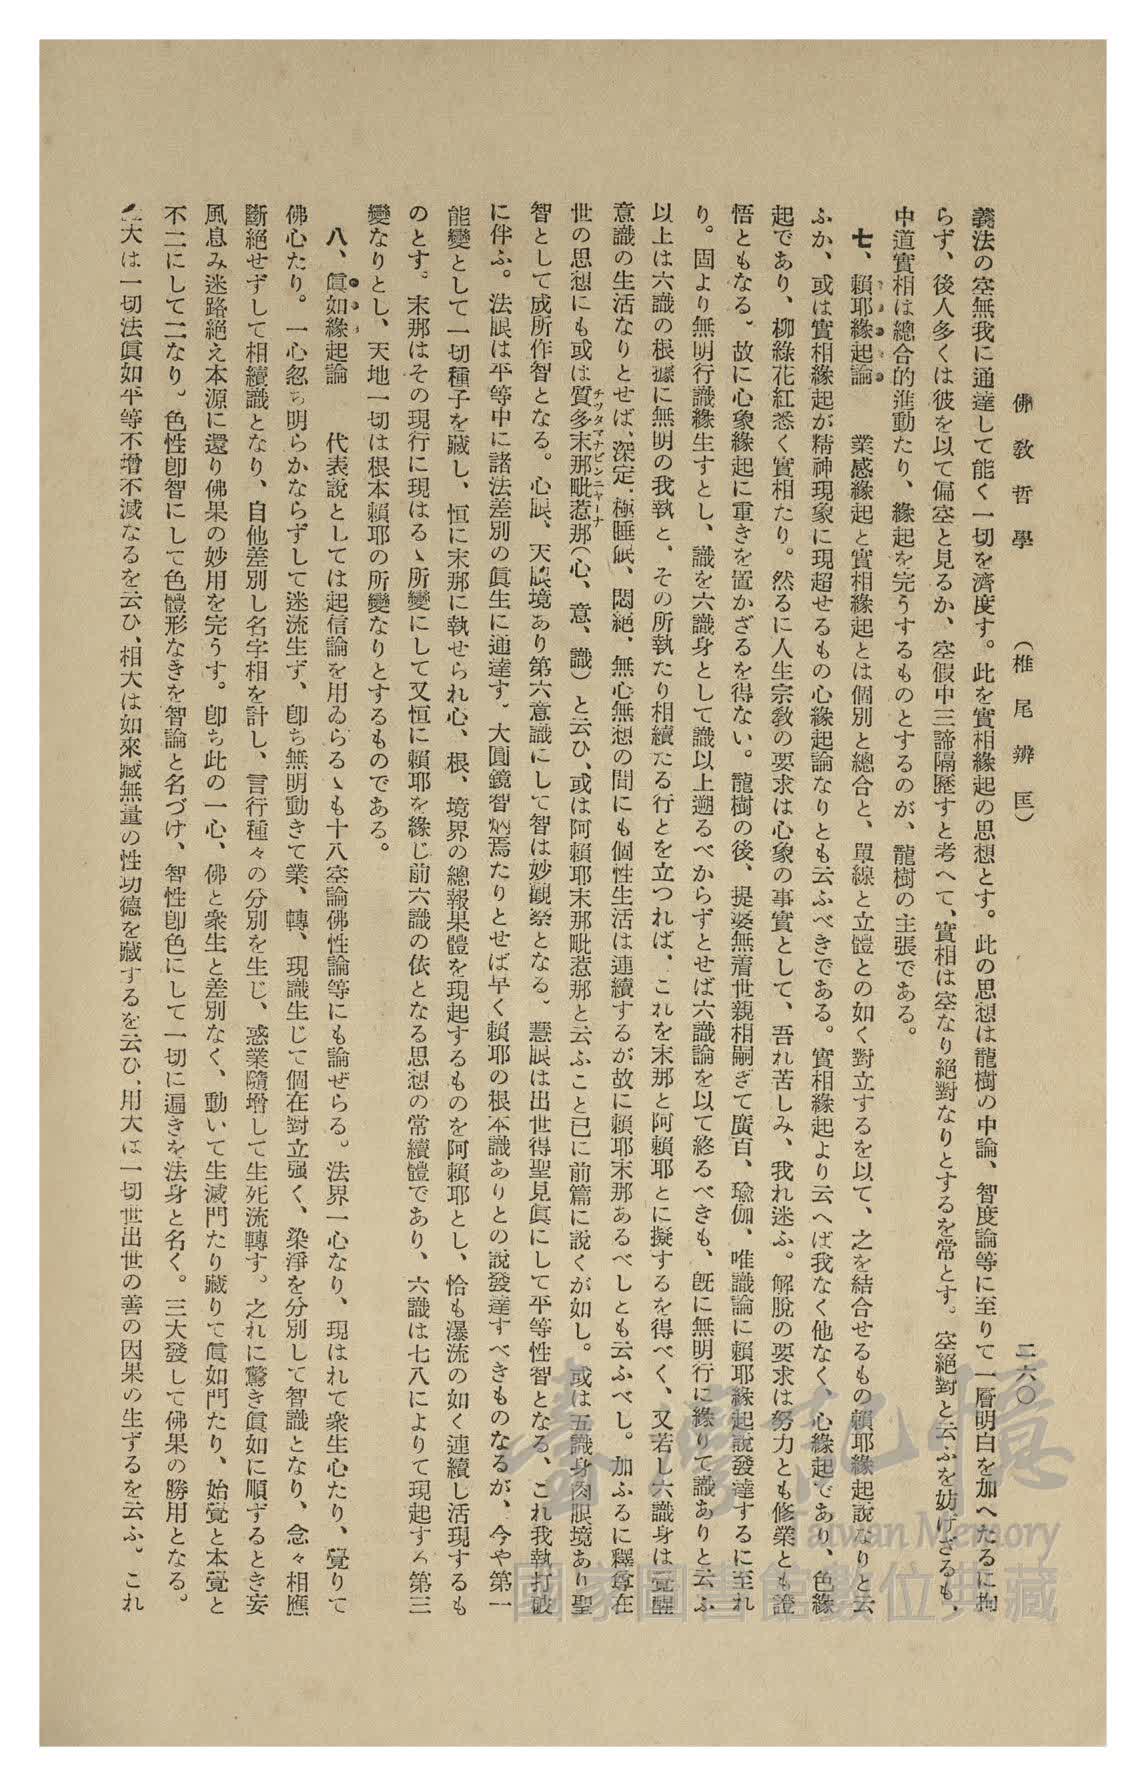 佛教哲學　（椎尾辨匡）　二六〇
義法の空無我に通達して能く一切を濟度す。此を實相緣起の思想とす。此の思想は龍樹の中論、智度論等に至りて一層明白を加へたるに拘
らず、後人多くは彼を以て偏空と見るか、空假中三諦隔歷すと考へて、實相は空なり絕對なりとするを常とす。空絕對と云ふを妨げざるも、
中道實相は總合的進動たり、緣起を完うするものとするのが、龍樹の主張である。
七、賴耶緣起論　業感緣起と實相緣起とは個別と總合と、單線と立體との如く對立するを以て、之を結合せるもの賴耶緣起說なりと云
ふか、或は實相緣起が精神現象に現超せるもの心緣起論なりとも云ふべきである。實相緣起より云へば我なく他なく、心緣起であり、色緣
起であり、柳綠花紅悉く實相たり。然るに人生宗敎の要求は心象の事實として、吾れ苦しみ、我れ迷ふ。解脫の要求は努力とも修業とも證
悟ともなる。故に心象緣起に重きを置かざるを得ない。龍樹の後、提婆無着世親相嗣ぎて廣百、瑜伽、唯識論に賴耶緣起說發達するに至れ
り。固より無明行識緣生すとし、識を六識身として識以上遡るべからずとせば六識論を以て終るべきも、既に無明行に緣りて識ありと云ふ
以上は六識の根據に無明の我執と、その所執たり相續たる行とを立つれば、これを末那と阿賴耶とに擬するを得べく、又若し六識身は覺醒
意識の生活なりとせば、深定、極睡眠、悶絕、無心無想の間にも個性生活は連續するが故に賴耶末那あるべしとも云ふべし。加ふるに釋尊在
世の思想にも或は質多末那毗惹那（心、意、識）と云ひ、或は阿賴耶末那毗惹那と云ふこと已に前篇に說くが如し。或は五識身肉眼境あり聖
チツタマナビンニヤーナ
智として成所作智となる。心眼、天眼境あり第六意識にして智は妙觀察となる。慧眼は出世得聖見眞にして平等性智となる、これ我執打破
に伴ふ。法眼は平等中に諸法差別の眞生に通達す。大圓鏡智炳焉たりとせば早く賴耶の根本識ありとの說發達すべきものなるが、今や第一
能變として一切種子を藏し、恒に末那に執せられ心、根、境界の總報果體を現起するものを阿賴耶とし、恰も瀑流の如く連續し活現するも
のとす。末那はその現行に現はるゝ所變にして又恒に賴耶を緣じ前六識の依となる思想の常續體であり、六識は七八によりて現起する第三
變なりとし、天地一切は根本賴耶の所變なりとするものである。
八、眞如緣起論　代表說としては起信論を用ゐらるゝも十八空論佛性論等にも論ぜらる。法界一心なり、現はれて衆生心たり、覺りて
佛心たり。一心忽ち明らかならずして迷流生ず、卽ち無明動きて業、轉、現識生じて個在對立强く、染淨を分別して智識となり、念々相應
斷絕せずして相續識となり、自他差別し名字相を計し、言行種々の分別を生じ、惑業隨增して生死流轉す。之れに驚き眞如に順ずるとき妄
風息み迷路絕え本源に還り佛果の妙用を完うす。卽ち此の一心、佛と衆生と差別なく、動いて生滅門たり藏りて眞如門たり、始覺と本覺と
不二にして二なり。色性卽智にして色體形なきを智論と名づけ、智性卽色にして一切に遍きを法身と名く。三大發して佛果の勝用となる。
大は一切法眞如平等不增不滅なるを云ひ、相大は如來藏無量の性切德を藏するを云ひ、用大は一切世出世の善の因果の生ずるを云ふ。これ
臺灣記憶
Taiwan Memory
國家圖書館數位典藏